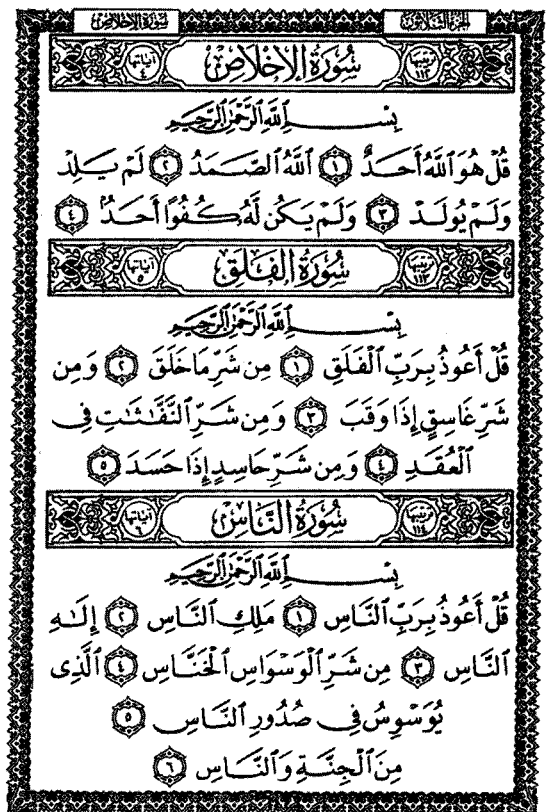 الجزء الثلاثون سورة الإخلاص
ترتيبها ١١٢ سُورَةُ الإِخْلَاصِ آيَاتها ٤
بِسْمِ ٱللَّهِ ٱلرَّحْمَٰنِ ٱلرَّحِيمِ
قُلْ هُوَ ٱللَّهُ أَحَدٌ ١ ٱللَّهُ ٱلصَّمَدُ ٢ لَمْ يَلِدْ
وَلَمْ يُولَدْ ٣ وَلَمْ يَكُن لَّهُۥ كُفُوًا أَحَدٌۢ ٤
ترتيبها ١١٣ سُورَةُ الفَلَقِ آيَاتها ٥
بِسْمِ ٱللَّهِ ٱلرَّحْمَٰنِ ٱلرَّحِيمِ
قُلْ أَعُوذُ بِرَبِّ ٱلْفَلَقِ ١ مِن شَرِّ مَا خَلَقَ ٢ وَمِن
شَرِّ غَاسِقٍ إِذَا وَقَبَ ٣ وَمِن شَرِّ ٱلنَّفَّٰثَٰتِ فِى
ٱلْعُقَدِ ٤ وَمِن شَرِّ حَاسِدٍ إِذَا حَسَدَ ٥
ترتيبها ١١٤ سُورَةُ النَّاسِ آيَاتها ٦
بِسْمِ ٱللَّهِ ٱلرَّحْمَٰنِ ٱلرَّحِيمِ
قُلْ أَعُوذُ بِرَبِّ ٱلنَّاسِ ١ مَلِكِ ٱلنَّاسِ ٢ إِلَٰهِ
ٱلنَّاسِ ٣ مِن شَرِّ ٱلْوَسْوَاسِ ٱلْخَنَّاسِ ٤ ٱلَّذِى
يُوَسْوِسُ فِى صُدُورِ ٱلنَّاسِ ٥
مِنَ ٱلْجِنَّةِ وَٱلنَّاسِ ٦